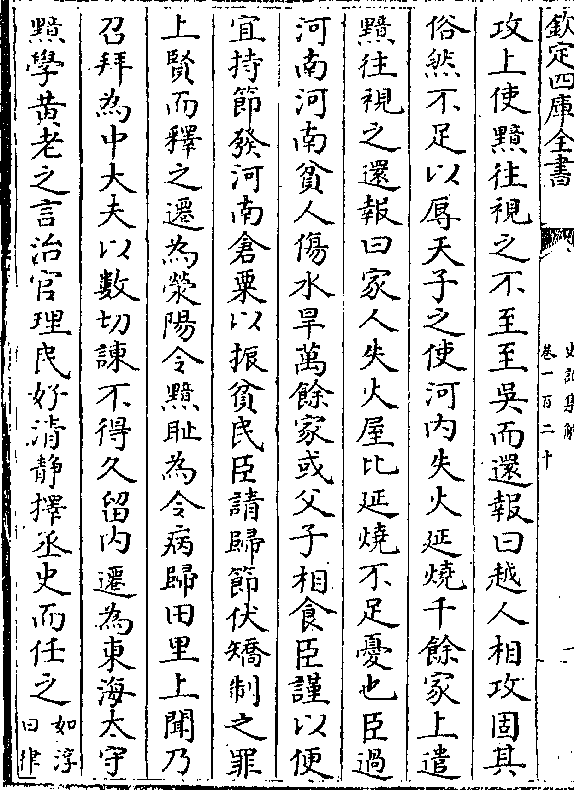 欽定四庫全書
史記集解
卷一百二十
攻上使黯往視之不至至吳而還報曰越人相攻固其
俗然不足以辱天子之使河内失火延燒千餘家上遣
黯往視之還報曰家人失火屋比延燒不足憂也臣過
河南河南貧人傷水旱萬餘家或父子相食臣謹以便
宜持節發河南倉粟以振貧民臣請歸節伏矯制之罪
上賢而釋之遷為滎陽令黯耻為令病歸田里上聞乃
召拜為中大夫以數切諫不得久留内遷為東海太守
黯學黄老之言治官理民好清静擇丞史而任之如淳
曰律